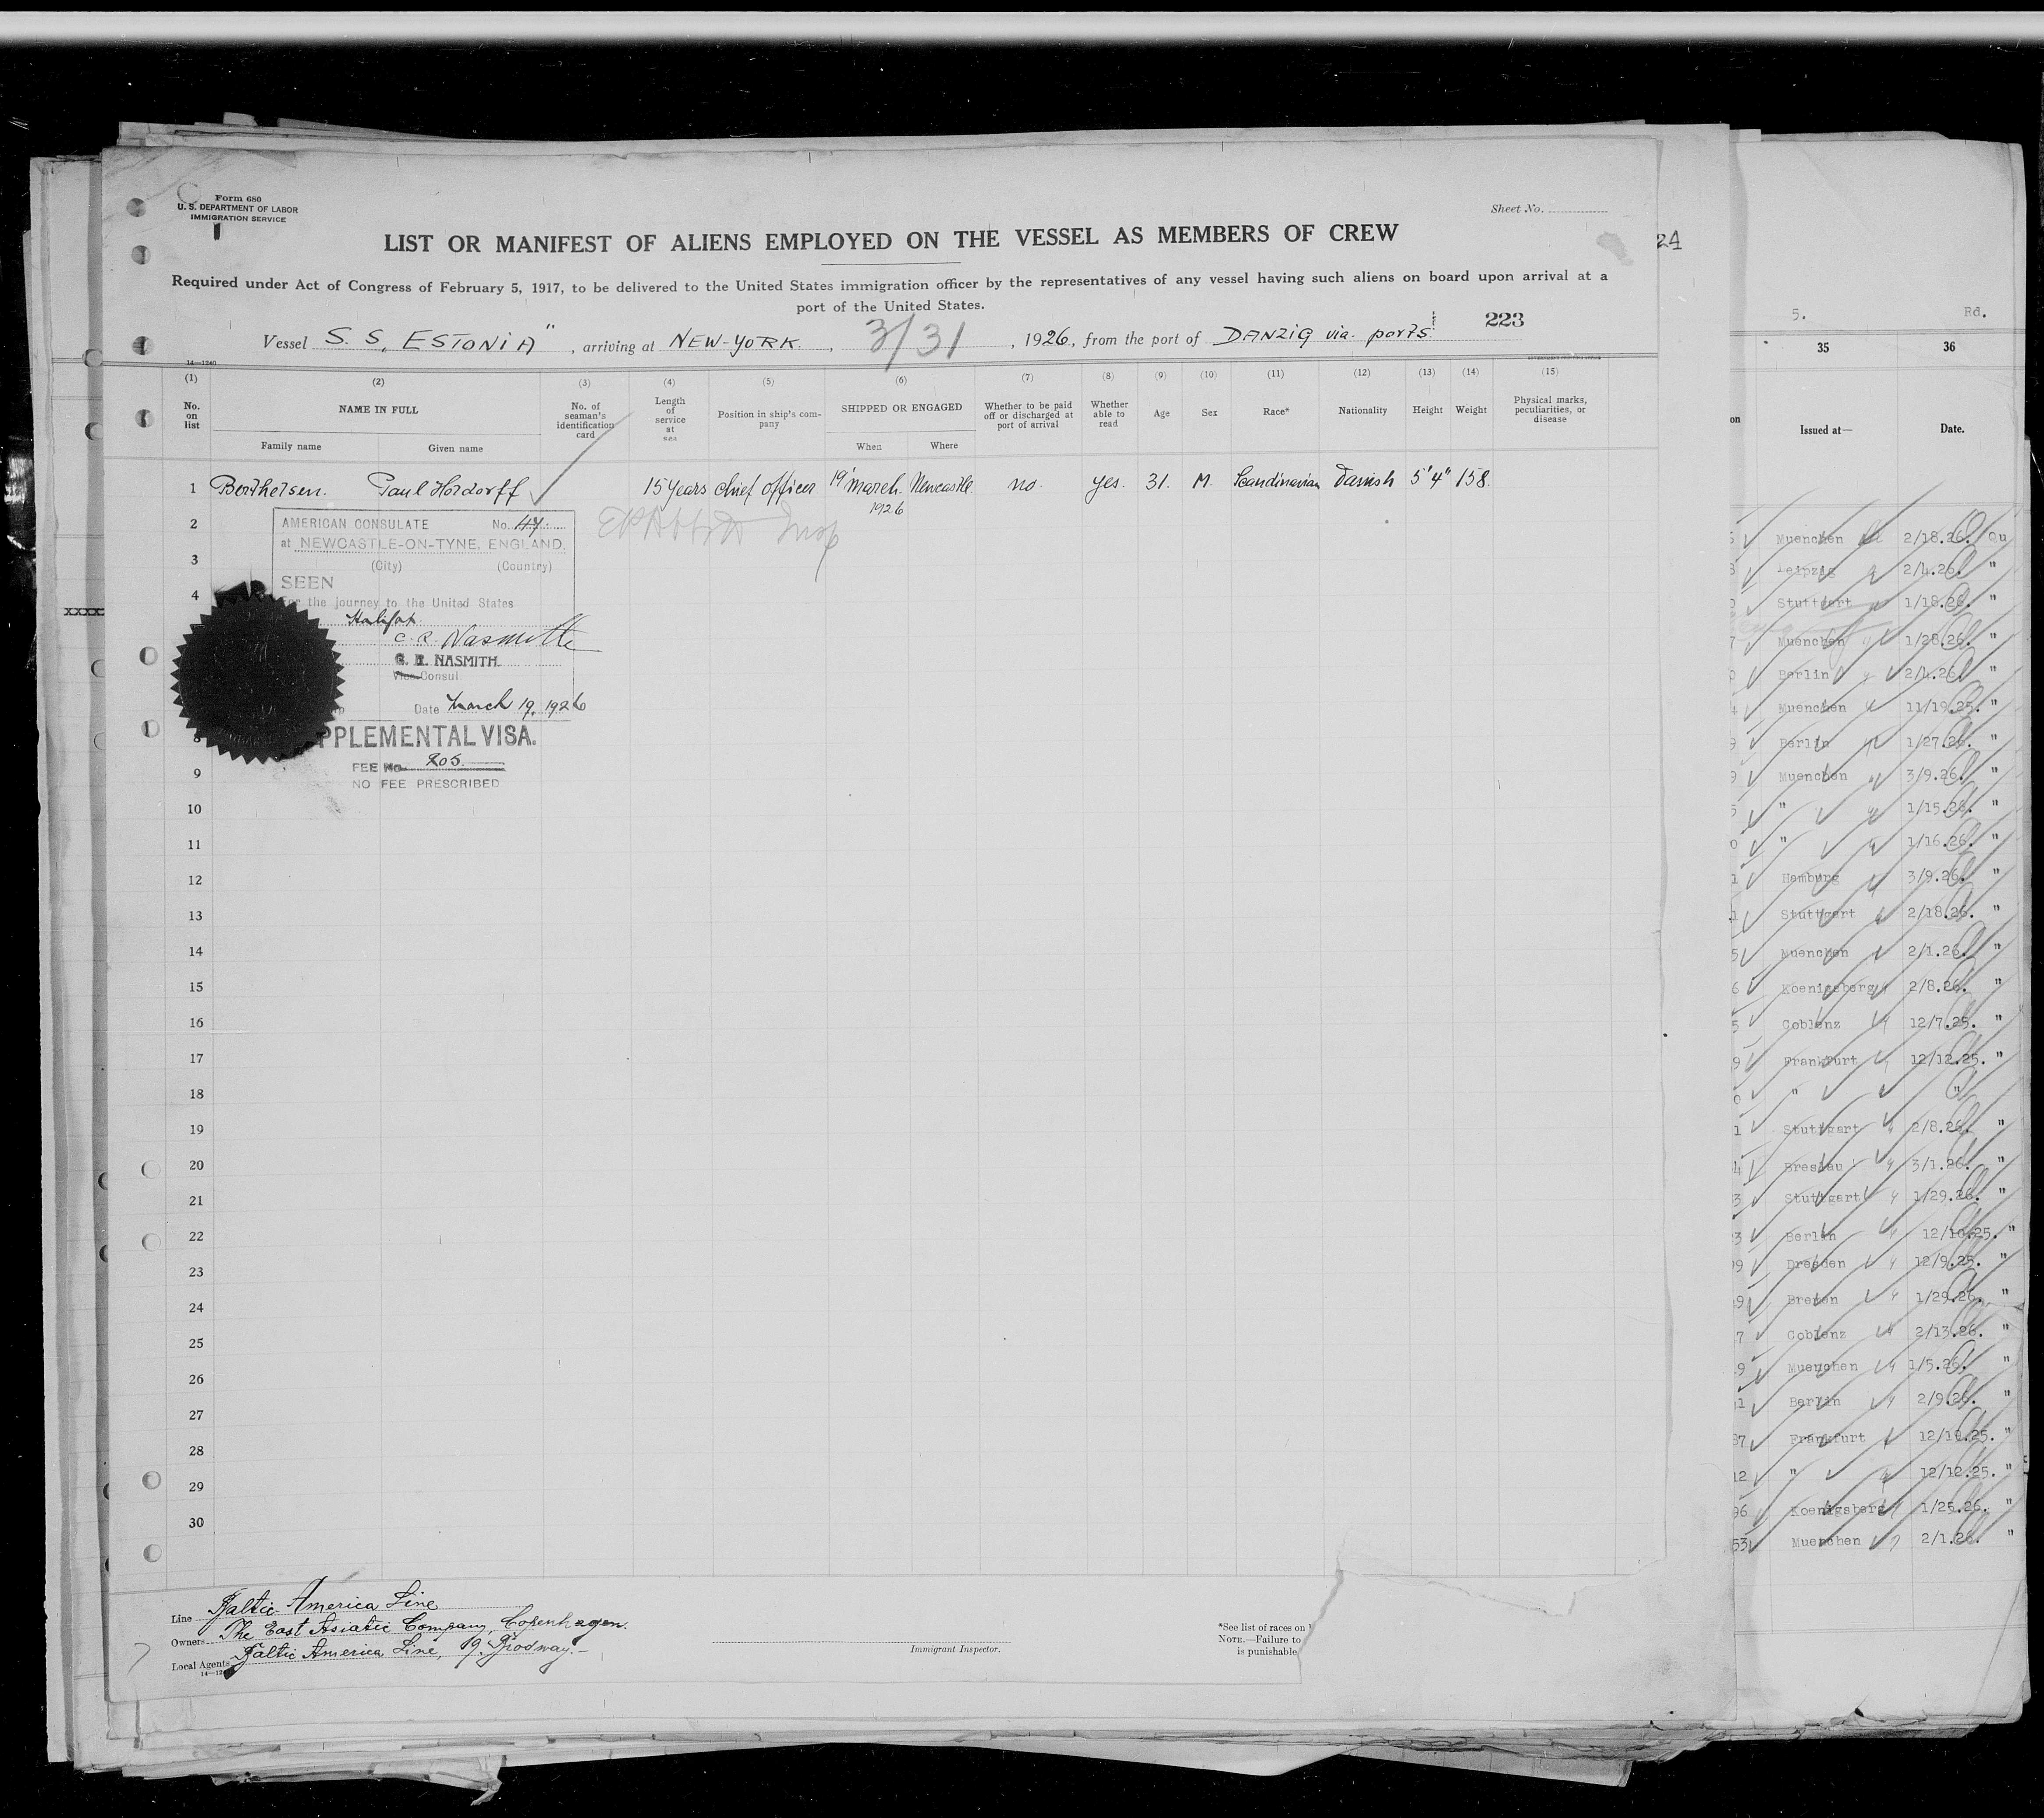 Form 680
U. S. DEPARTMENT OF LABOR
IMMIGRATION SERVICE
Sheet No.
LIST OR MANIFEST OF ALIENS EMPLOYED ON THE VESSEL AS MEMBERS OF CREW
24
Required under Act of Congress of February 5, 1917, to be delivered to the United States immigration officer by the representatives of any vessel having such aliens on board upon arrival at a
port of the United States.
223
Vessel S. S. "ESTONIA", arriving at NEW-YORK., 3/31, 1926, from the port of DANZIG via ports.
14—1240
(1) (2) (3) (4) (5) (6) (7) (8) (9) (10) (11) (12) (13) (14) (15)
No. on list
NAME IN FULL
Family name Given name
No. of seaman's identification card
Length of service at sea
Position in ship's company
SHIPPED OR ENGAGED
When Where
Whether to be paid off or discharged at port of arrival
Whether able to read
Age
Sex
Race*
Nationality
Height
Weight
Physical marks, peculiarities, or disease
1 Berthelsen. Paul Hordorff 15 years chief officer 19' march 1926 Newcastle no. yes. 31. M. Scandinavian Danish 5'4" 158.
2
3
4
8
9
10
11
12
13
14
15
16
17
18
19
20
21
22
23
24
25
26
27
28
29
30
AMERICAN CONSULATE No. 44
at NEWCASTLE-ON-TYNE, ENGLAND.
(City) (Country)
SEEN
For the journey to the United States
Halifax
C. R. Nasmith
NASMITH
Vice Consul
Date March 19, 1926
PPLEMENTAL VISA.
FEE No. 805.
NO FEE PRESCRIBED
Line Baltic America Line
Owners The East Asiatic Company, Copenhagen.
Local Agents Baltic America Line, 9. Brodway.
Immigrant Inspector.
*See list of races on
NOTE.—Failure to
is punishable
5. Rd.
35 36
Issued at— Date.
Muenchen 2/18.26. Qu
Leipzig 2/4.26. "
Stuttgart 1/18.26. "
Muenchen 1/28.26. "
Berlin 2/4.26. "
Muenchen 11/19.25. "
Berlin 1/27.26. "
Muenchen 3/9.26. "
" 1/15.26. "
" 1/16.26. "
Hamburg 3/9.26. "
Stuttgart 2/18.26. "
Muenchen 2/1.26. "
Koenigsberg 2/8.26. "
Coblenz 12/7.25. "
Frankfurt 12/12.25. "
" "
Stuttgart 2/8.26. "
Breslau 3/1.26. "
Stuttgart 1/29.26. "
Berlin 12/10.25. "
Dresden 12/9.25. "
Bremen 1/29.26. "
Coblenz 2/13.26. "
Muenchen 1/5.26. "
Berlin 2/9.26. "
Frankfurt 12/19.25. "
" 12/12.25. "
Koenigsberg 1/25.26. "
Muenchen 2/1.26. "